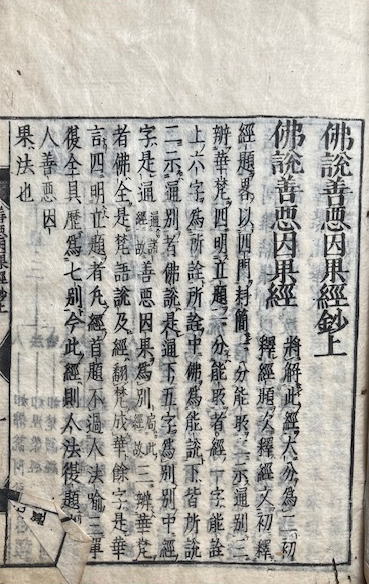 佛說善惡因果經鈔上
佛說善惡因果經
將解此經大分為二初
釋經題次釋經文初釋
經題畧以四門料簡一分能所二示通別三
辨華梵四明立題一分能所者經一字能詮
上六字為所詮所詮中佛為能說下皆所說
二示通別者佛說是通下五字為別別中經
字是通通諸經故善惡因果為別局此經故三辨華梵
者佛全是梵語說及經翻梵成華餘字是華
言四明立題者凡經首題不過人法喻三單
復全具歷為七別今此經則人法復題
人善惡因
果法也
善惡因果經鈔上